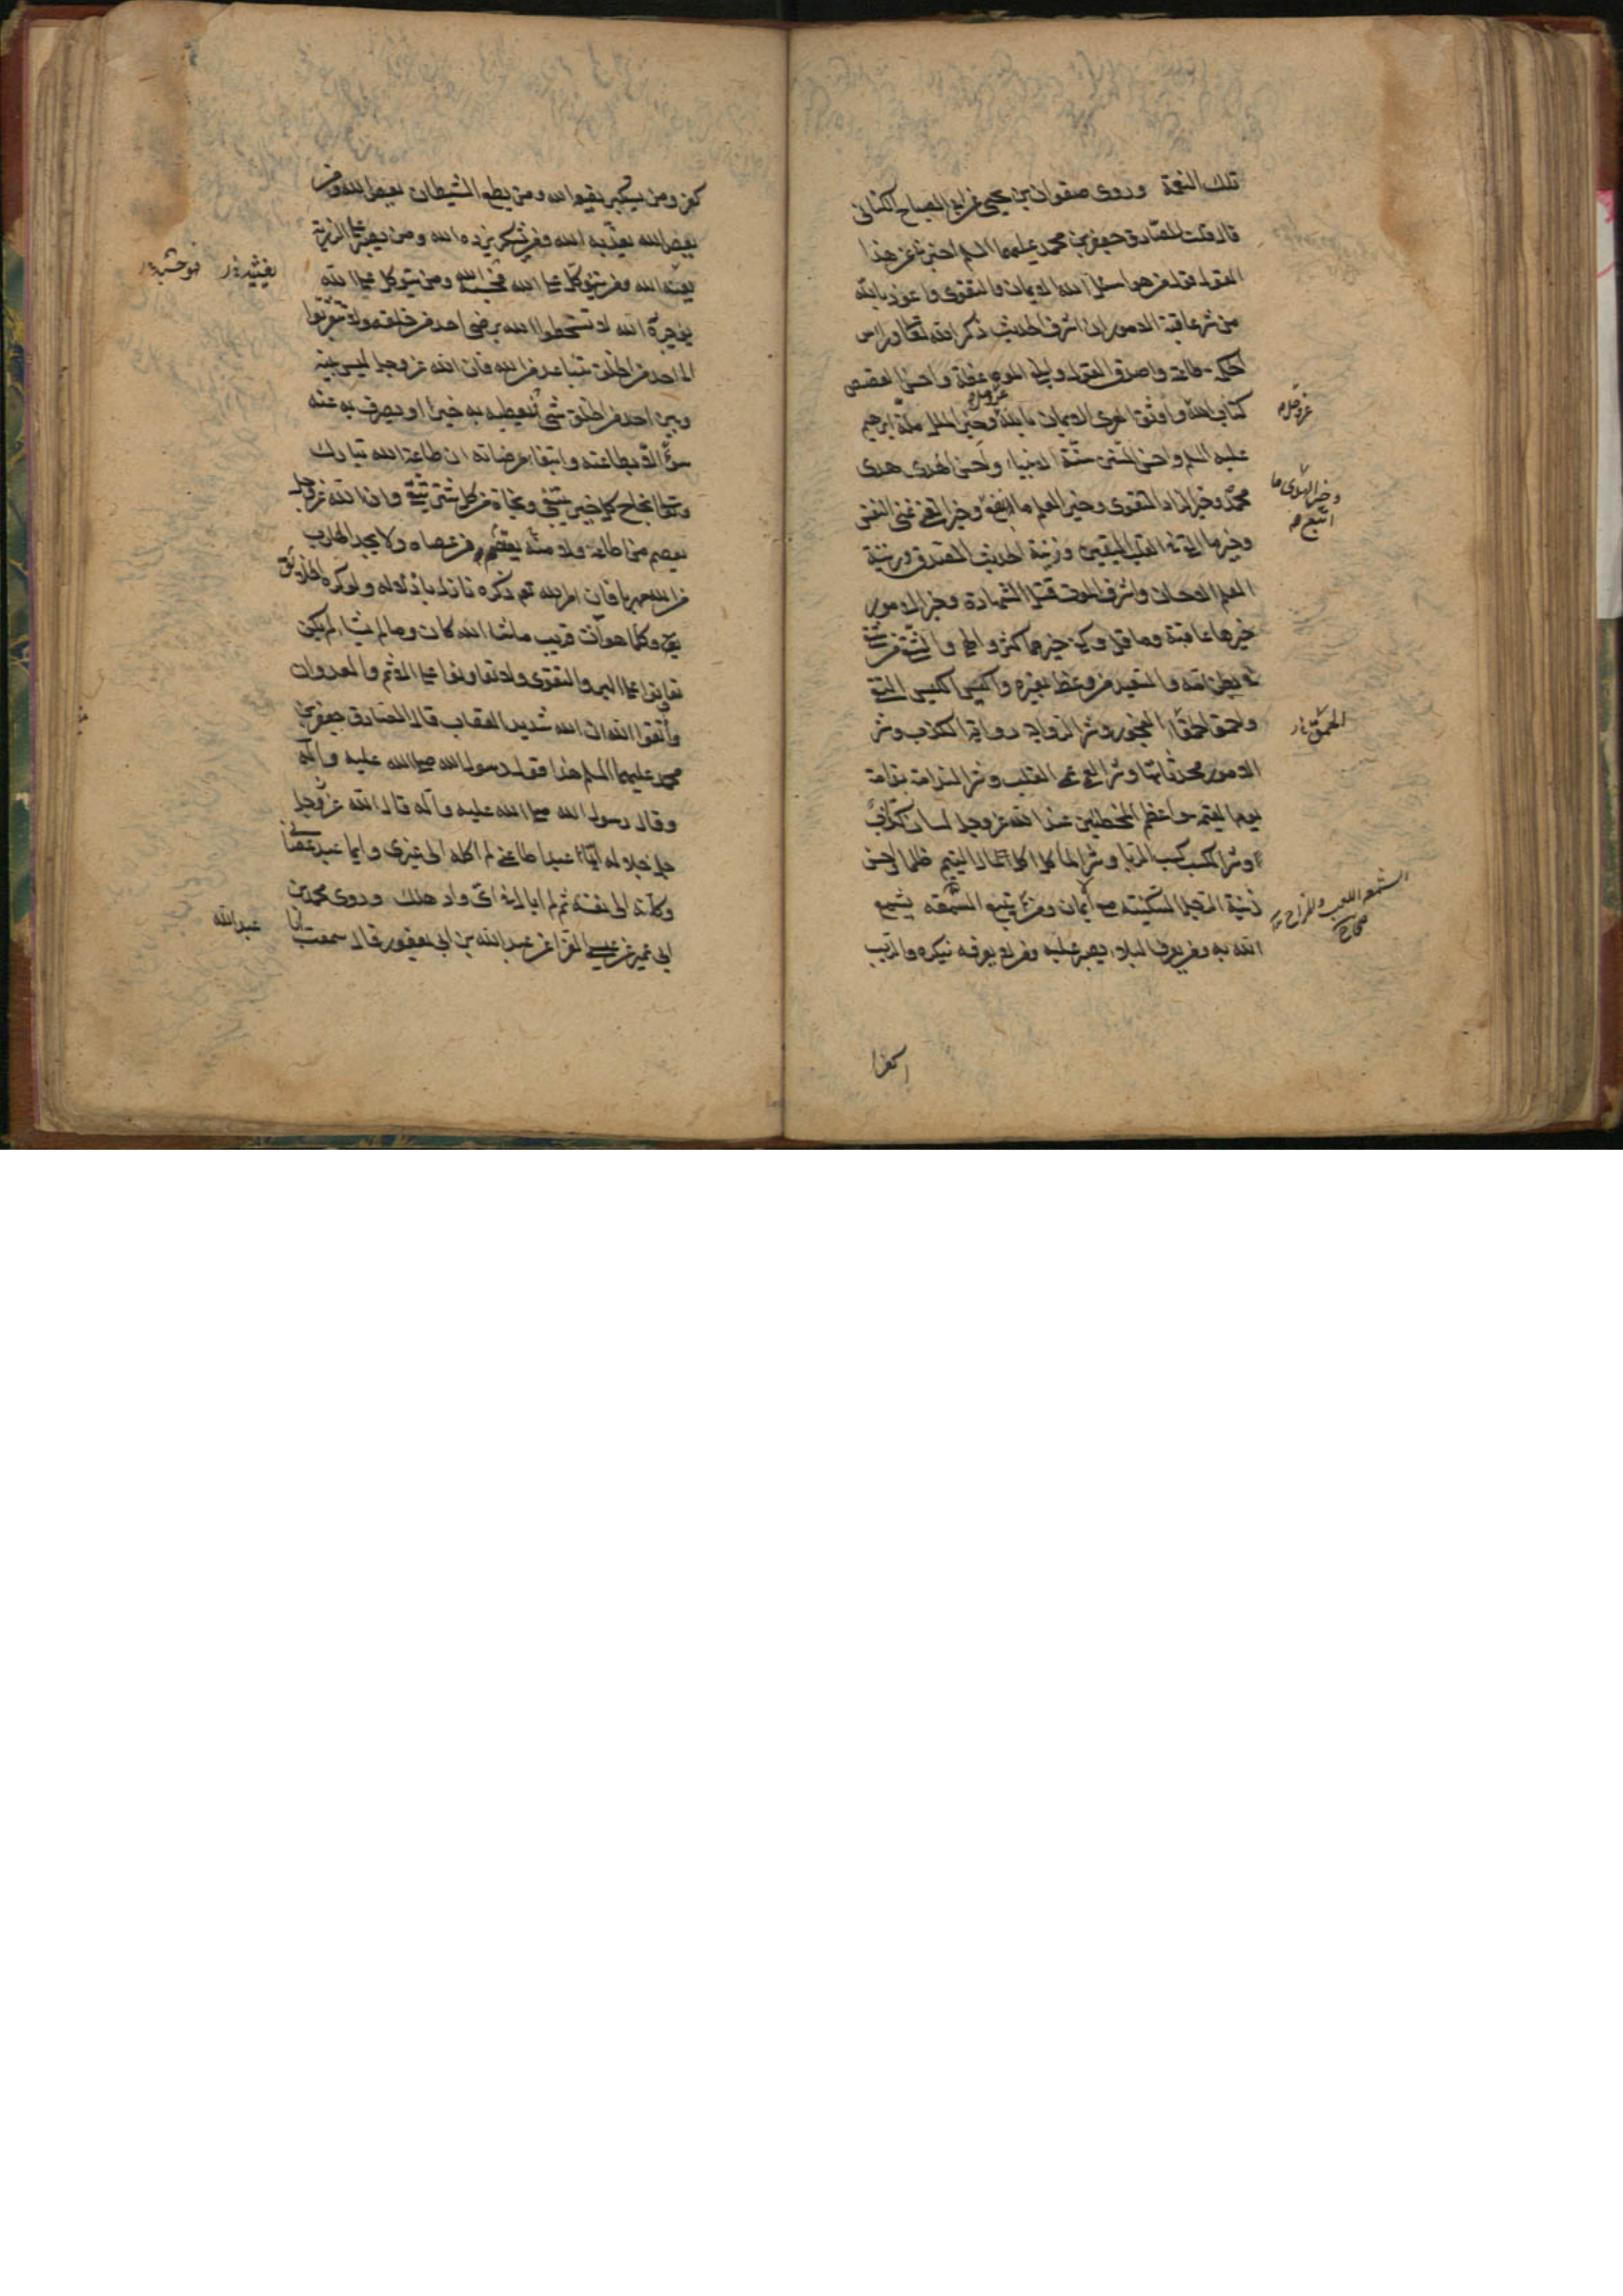 تلك النعمة وروى صفوان بن يحيى عن ابى الصباح الكنانى
قال قلت للصادق جعفر بن محمد عليهما السلم اخبرنى عن هذا
القول قول من هو اسئل الله الايمان والتقوى واعوذ بالله
من شر عاقبة الامور ان اشرف الحديث ذكر الله تعالى وراس
الحكمة طاعته واصدق القول وابلغ الموعظة واحسن القصص
كتاب الله واوثق العرى الايمان بالله وخير الملل ملة ابرهيم
عز وجل
عليه السلم واحسن السنن سنة الانبياء واحسن الهدى هدى
محمد وخير الزاد التقوى وخير العلم ما نفع وخير الغنى غنى النفس
وخير ما القى فى القلب اليقين وزينة الحديث الصدق وزينة
العلم الاحسان واشرف الموت قتل الشهادة وخير الامور
خيرها عاقبة وما قل وكفى خير مما كثر والهى والشقى من شقى
فى بطن امه والسعيد من وعظ بغيره واكيس الكيس التقى
واحمق الحمقاء الفجور وشر الرواية رواية الكذب وشر
الامور محدثاتها وشر العمى عمى القلب وشر الندامة ندامة
يوم القيمة واعظم المخطئين عند الله عز وجل لسان كذاب
وشر الكسب كسب الربا وشر الماكل اكل مال اليتيم ظلما واحسن
زينة الرجل السكينة مع ايمان ومن يتبع المشمعة يشمع
الله به ومن يعرف البلاء يصبر عليه ومن لا يعرفه ينكره والريب
كفر
عز وجل
وخير الهدى ما
اتبع
الحمق
الشمع اللعب والمزاح
صحاح
كفر ومن يستكبر يضعه الله ومن يطع الشيطان يعص الله ومن
يعص الله يعذبه الله ومن يشكر يزده الله ومن يصبر على الرزية
يعنه الله ومن يتوكل على الله فحسبه الله ومن يتوكل على الله
يوجره الله لا تسخطوا الله برضى احد من خلقه ولا تتقربوا
الى احد من الخلق بتباعد من الله فان الله عز وجل ليس بينه
وبين احد من الخلق شى فيعطيه به خيرا او يصرف به عنه
سوءا الا بطاعته وابتغاء مرضاته ان طاعة الله تبارك
وتعالى نجاح كل خير يبتغى ونجاة من كل شر يتقى وان الله عز وجل
يعصم من اطاعه ولا يعتصم منه من عصاه ولا يجد الهارب
من الله مهربا فان امر الله تعالى ذكره نازل باذلاله ولو كره الخلايق
وكلما هو آت قريب ما شاء الله كان وما لم يشا لم يكن
تعاونوا على البر والتقوى ولا تعاونوا على الاثم والعدوان
واتقوا الله ان الله شديد العقاب قال الصادق جعفر بن
محمد عليهما السلم هذا قول رسول الله صلى الله عليه وآله
وقال رسول الله صلى الله عليه وآله قال الله عز وجل
جل جلاله ايما عبد اطاعنى لم اكله الى غيرى وايما عبد عصانى
وكلته الى نفسه ثم لم ابال فى اى واد هلك وروى محمد بن
ابى عمير عن عيسى الفراء عن عبد الله بن ابى يعفور قال سمعت ابا
يغيثه
فهو حسبه
عبدالله